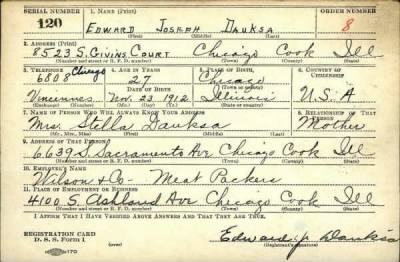 SERIAL NUMBER 1. NAME (Print) ORDER NUMBER
120 EDWARD JOSEPH DAUKSA 8
(First) (Middle) (Last)
2. ADDRESS (Print)
8523 S. GIVINS COURT Chicago Cook Ill
(Number and street or R. F. D. number) (Town) (County) (State)
3. TELEPHONE 4. AGE IN YEARS 5. PLACE OF BIRTH 6. COUNTRY OF CITIZENSHIP
6808 Chicago 27 Chicago
DATE OF BIRTH (Town or county)
Vincennes Nov. 23 1912 Illinois U.S.A
(Exchange) (Number) (Mo.) (Day) (Yr.) (State or country)
7. NAME OF PERSON WHO WILL ALWAYS KNOW YOUR ADDRESS 8. RELATIONSHIP OF THAT PERSON
Mrs. Stella Dauksa Mother
(Mr., Mrs., Miss) (First) (Middle) (Last)
9. ADDRESS OF THAT PERSON
6639 S. Sacramento Ave Chicago Cook Ill
(Number and street or R. F. D. number) (Town) (County) (State)
10. EMPLOYER'S NAME
Wilson & Co - Meat Packers
11. PLACE OF EMPLOYMENT OR BUSINESS
4100 S. Ashland Ave Chicago Cook Ill
(Number and street or R. F. D. number) (Town) (County) (State)
I AFFIRM THAT I HAVE VERIFIED ABOVE ANSWERS AND THAT THEY ARE TRUE.
REGISTRATION CARD
D. S. S. Form 1 Edward J. Dauksa
(Registrant's signature)